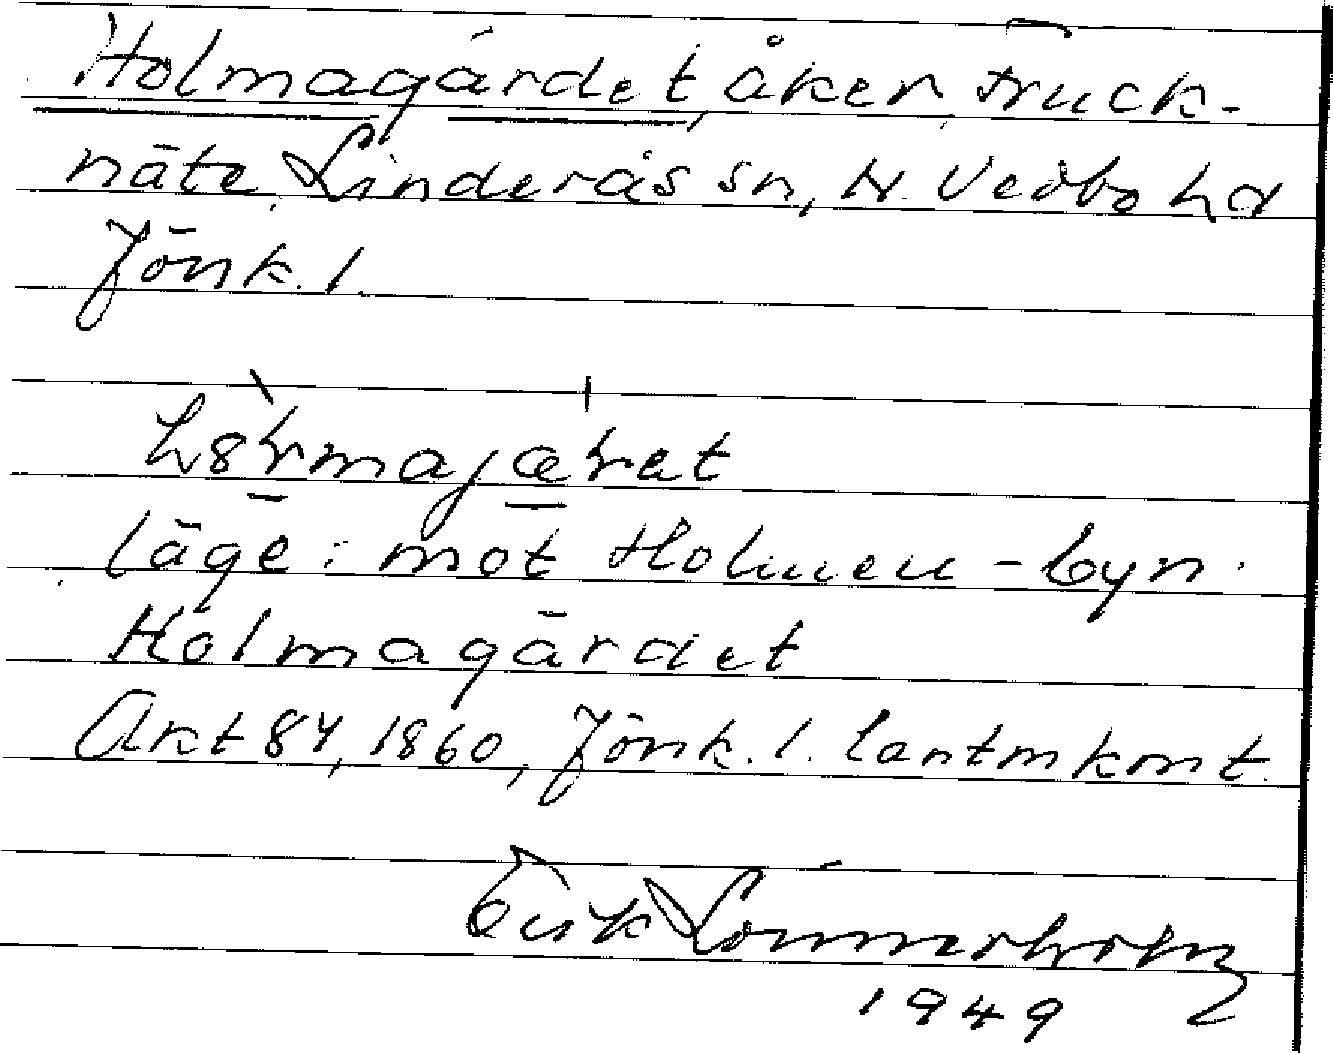 Holmagärdet, åker, Fruck-
näte, Linderås sn, N. Vedbo hd
Jönk. l.
läge: mot Holmen - byn.
Holmagärdet
Akt 84, 1860, Jönk. l. lantmkont.
Erik Lönnerholm
1949